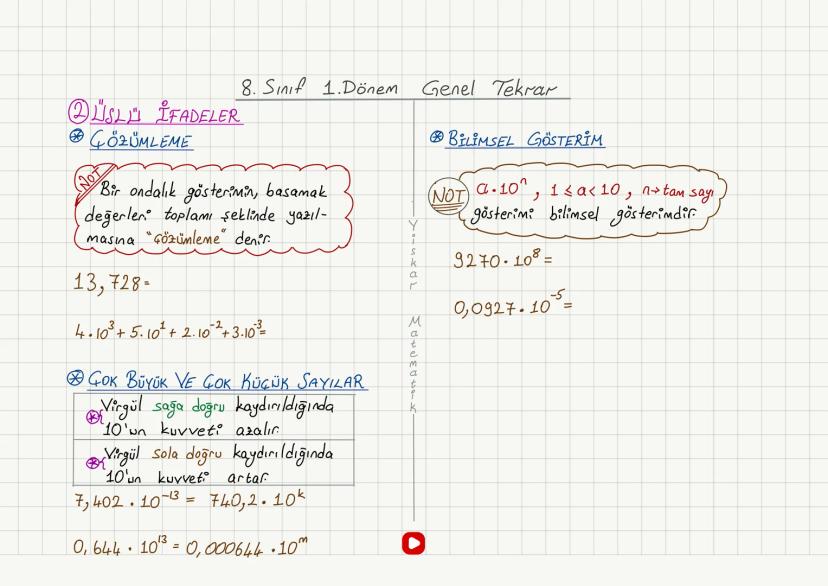 8. Sınıf 1.Dönem Genel Tekrar
② ÜSLÜ İFADELER
ÇÖZÜMLEME
NOT
Bir ondalık gösterimin, basamak
değerleri toplamı şeklinde yazıl-
masına "çözümleme" denir.
13,728=
4·10³+5·10¹+2·10⁻²+3·10⁻³=
ÇOK BÜYÜK VE ÇOK KÜÇÜK SAYILAR
Virgül sağa doğru kaydırıldığında
10'un kuvveti azalır.
Virgül sola doğru kaydırıldığında
10'un kuvveti artar.
7,402·10⁻¹³ = 740,2·10ᵏ
0,644·10¹³ = 0,000644·10ᵐ
Yıskar Matematik
BİLİMSEL GÖSTERİM
NOT
a·10ⁿ, 1≤a<10, n→tam sayı
gösterimi bilimsel gösterimdir.
9270·10⁸=
0,0927·10⁻⁵=